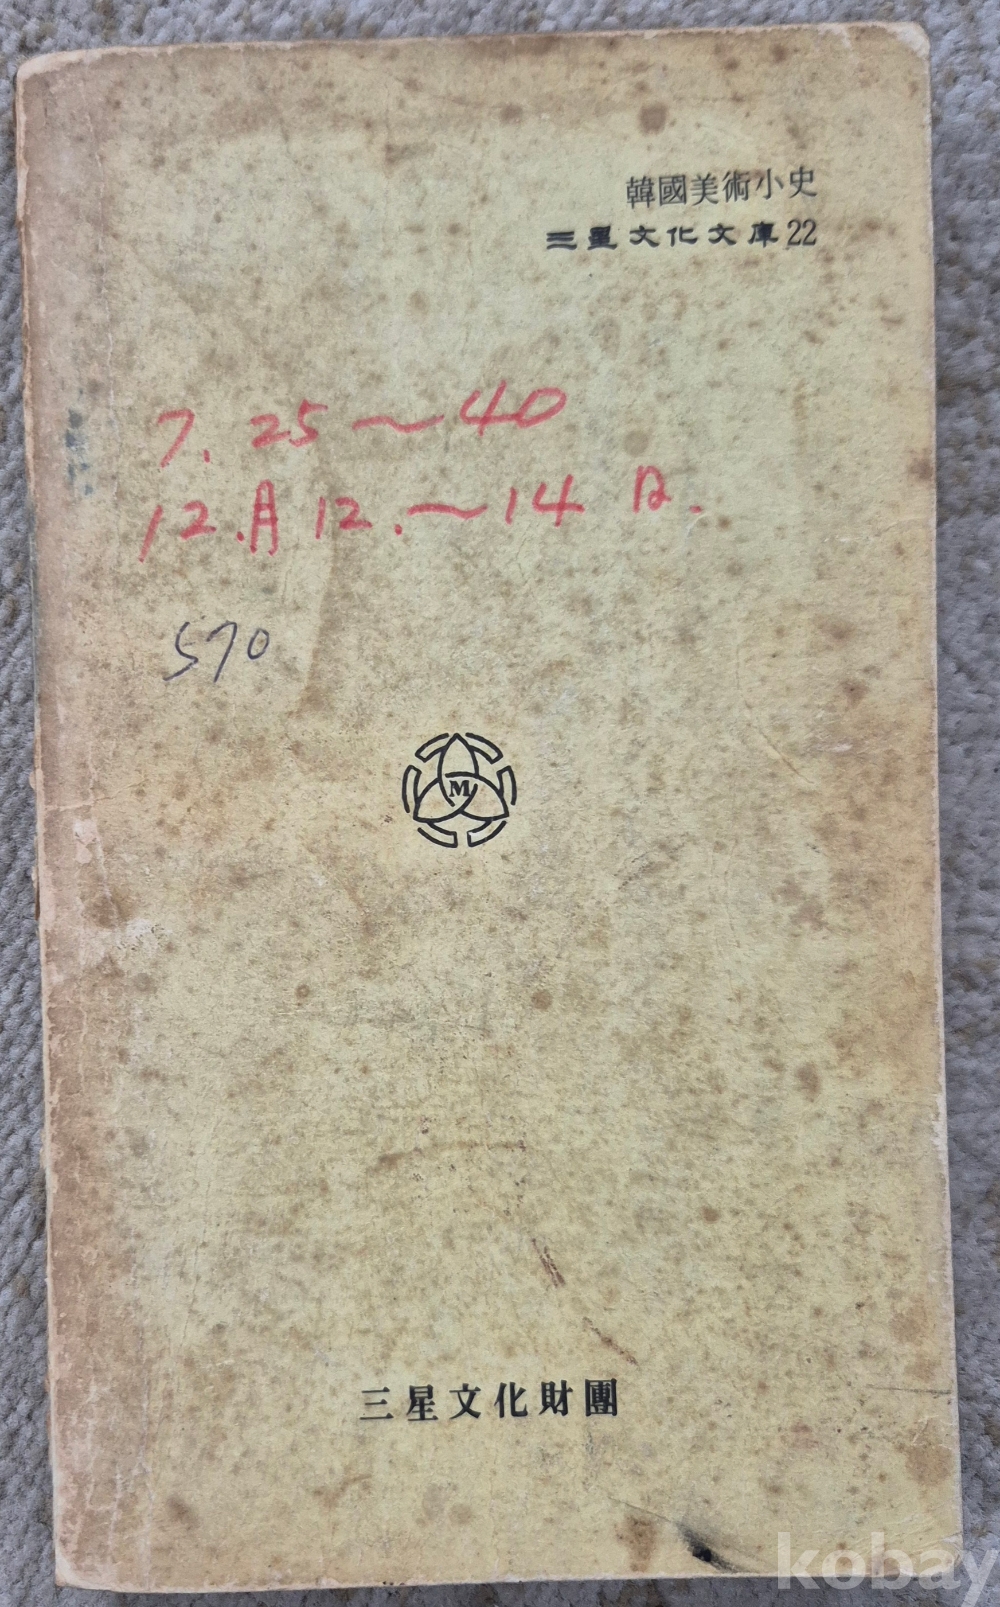 韓國美術小史
三星文化文庫22
7. 25~40
12.月12.~14日.
570
M
三星文化財團
kobay